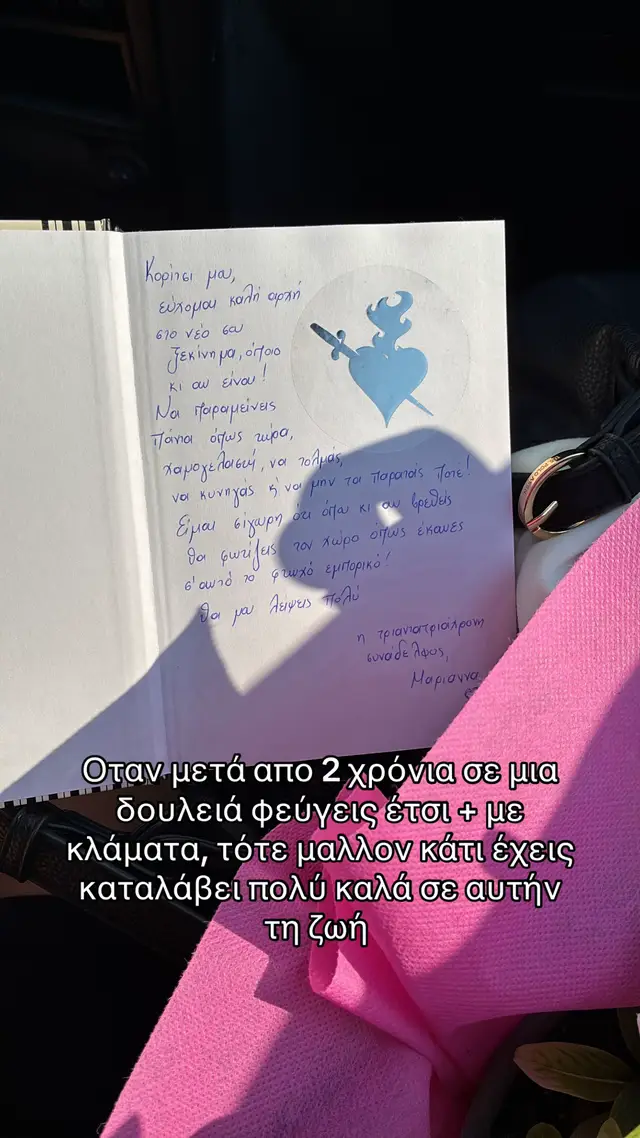 Κορίτσι μου,
εύχομαι καλή αρχή
στο νέο σου
ξεκίνημα, όποιο
κι αν είναι!
Να παραμείνεις
πάντα όπως τώρα,
χαμογελαστή, να τολμάς,
να κυνηγάς κ' να μην τα παρατάς ποτέ!
Είμαι σίγουρη ότι όπου κι αν βρεθείς
θα φωτίζεις τον χώρο όπως έκανες
σ' αυτό το φτωχό εμπορικό!
Θα μου λείψεις πολύ
η τριαντατριάχρονη
συνάδελφος,
Μαριάννα
Οταν μετά απο 2 χρόνια σε μια
δουλειά φεύγεις έτσι + με
κλάματα, τότε μαλλον κάτι έχεις
καταλάβει πολύ καλά σε αυτήν
τη ζωή